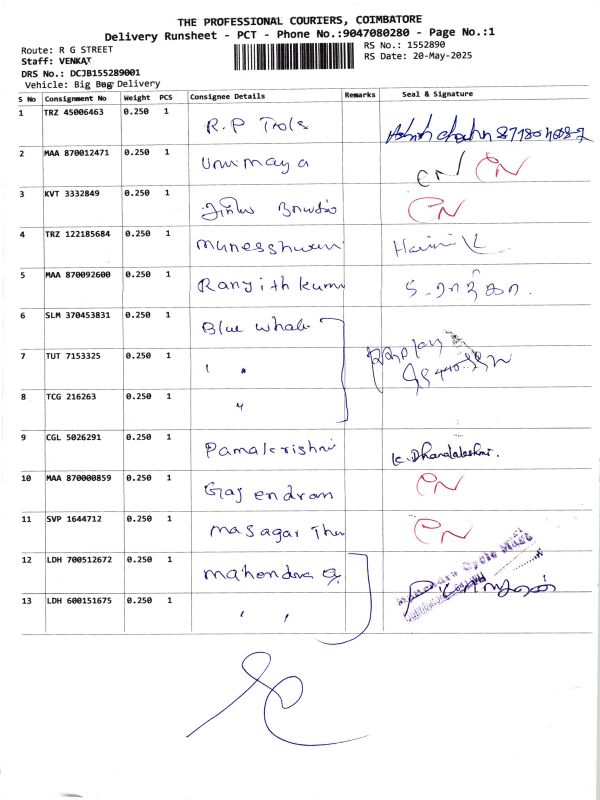 THE PROFESSIONAL COURIERS, COIMBATORE
Delivery Runsheet - PCT - Phone No.:9047080280 - Page No.:1
Route: R G STREET
RS No.: 1552890
Staff: VENKAT
RS Date: 20-May-2025
DRS No.: DCJB155289001
Vehicle: Big Bag Delivery
S No Consignment No Weight PCS Consignee Details Remarks Seal & Signature
1 TRZ 45006463 0.250 1 R.P Tools
2 MAA 870012471 0.250 1 Unumaya
3 KVT 3332849 0.250 1
4 TRZ 122185684 0.250 1 Munesshwaran
5 MAA 870092600 0.250 1 Ranjith kumar
6 SLM 370453831 0.250 1 Blue whale
7 TUT 7153325 0.250 1 " "
8 TCG 216263 0.250 1 "
9 CGL 5026291 0.250 1 Pamakrishni K. Dhanalakshmi.
10 MAA 870000859 0.250 1 Gajendran
11 SVP 1644712 0.250 1
12 LDH 700512672 0.250 1 Mahendra
13 LDH 600151675 0.250 1 " "